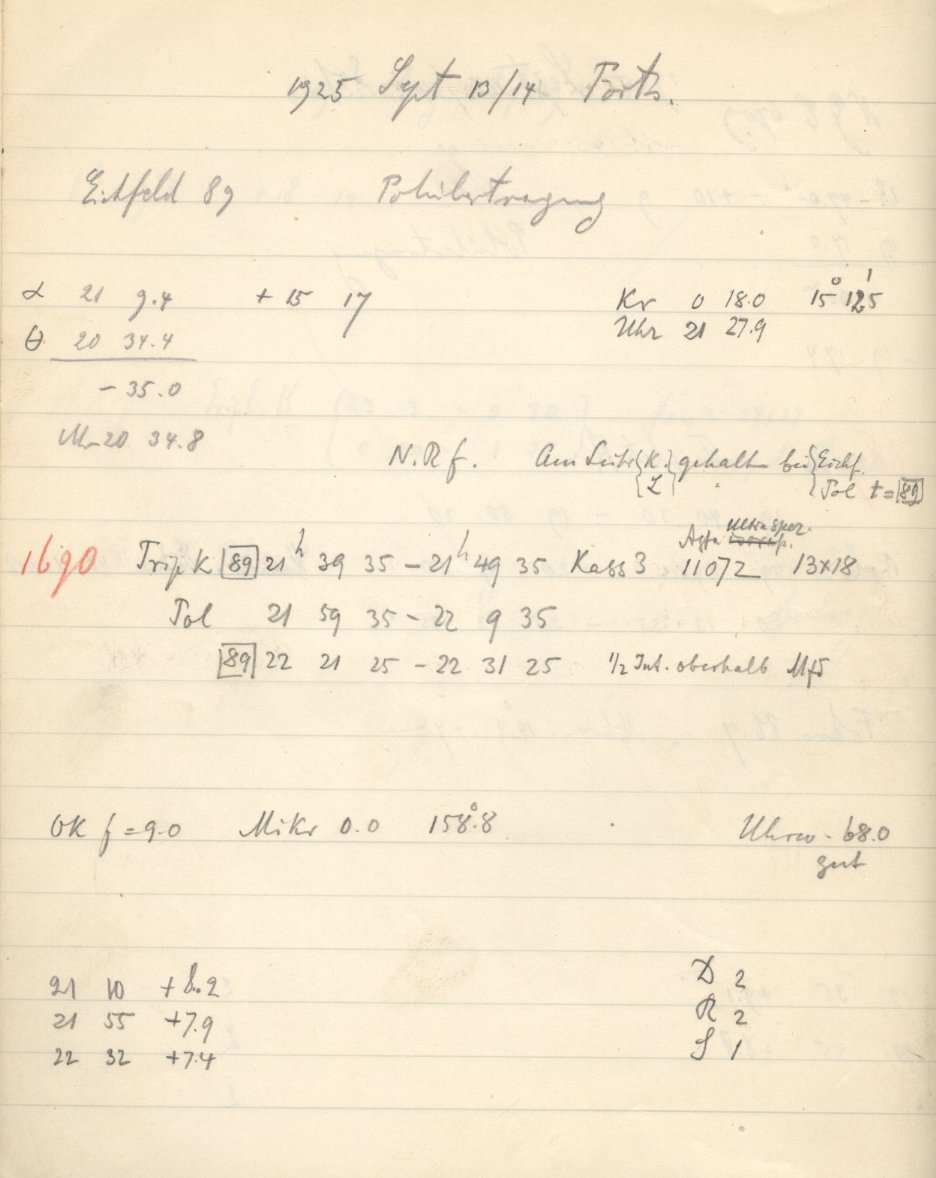 1925 Sept 13/14 Forts.
Eichfeld 89 Polübertragung
α 21 9.4 + 15 17 Kr 0 18.0 15° 12'.5
θ 20 34.4 Uhr 21 27.9
- 35.0
20 34.8
N.R f. Am {K. gehalten bei {Eichf.
Z} Pol t = 89
Ultra Spez.
1690 Trip K 89 21h 39 35 - 21h 49 35 Kass 3 Agfa 11072 13x18
Pol 21 59 35 - 22 9 35
89 22 21 25 - 22 31 25 1/2 Int. oberhalb
OK f = 9.0 Mikr 0.0 158°.8 Uhrw - 68.0
gut
21 10 + 8.2 D 2
21 55 +7.9 R 2
22 32 +7.4 S 1